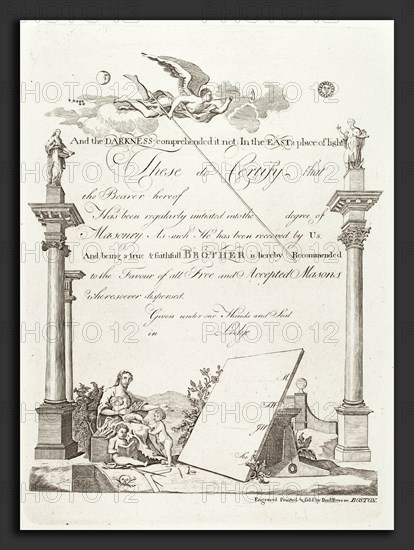 And the DARKNESS comprehended it not. In the EAST a place of light
These do Certify that
the Bearer hereof
Has been regularly initiated into the degree of
Masonry As such He has been received by Us
And being a true & faithfull BROTHER is hereby Recommended
to the Favour of all Free and Accepted Masons
wheresoever dispersed.
Given under our Hands and Seal
in Lodge
M
Engraved Printed & Sold by Paul Revere BOSTON